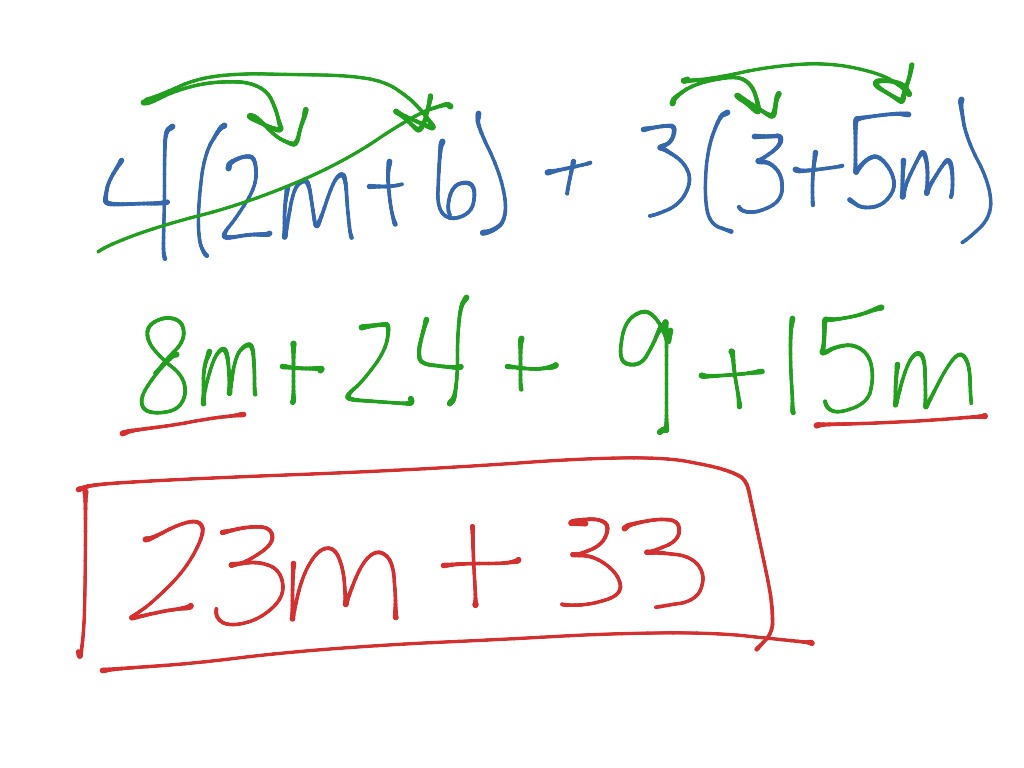 4(2m+6) + 3(3+5m)
8m+24 + 9 +15m
23m + 33